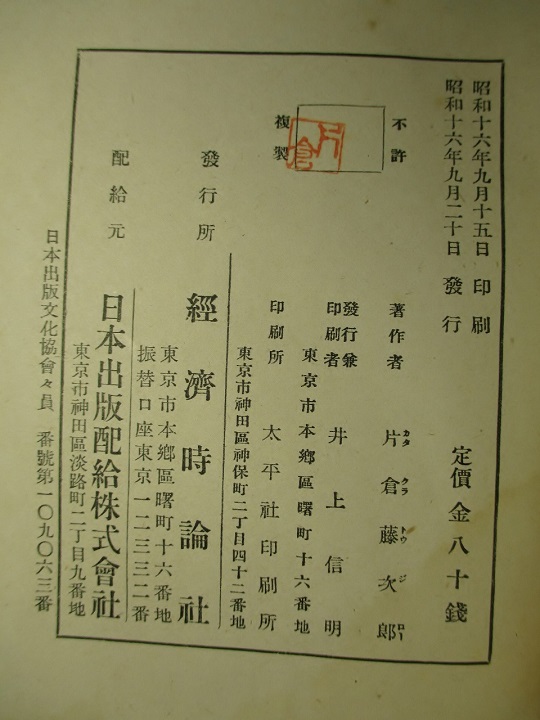 昭和十六年九月十五日 印刷
昭和十六年九月二十日 發行
定價金八十錢
不許
複製
片倉
著作者 片倉藤次郎
カタ クラ トウ ジ ロー
發行兼
印刷者 井上信明
東京市本鄉區曙町十六番地
印刷所 太平社印刷所
東京市神田區神保町二丁目四十二番地
發行所 經濟時論社
東京市本鄉區曙町十六番地
振替口座東京一二三三二番
配給元 日本出版配給株式會社
東京市神田區淡路町二丁目九番地
日本出版文化協會々員 番號第一〇九〇六三番